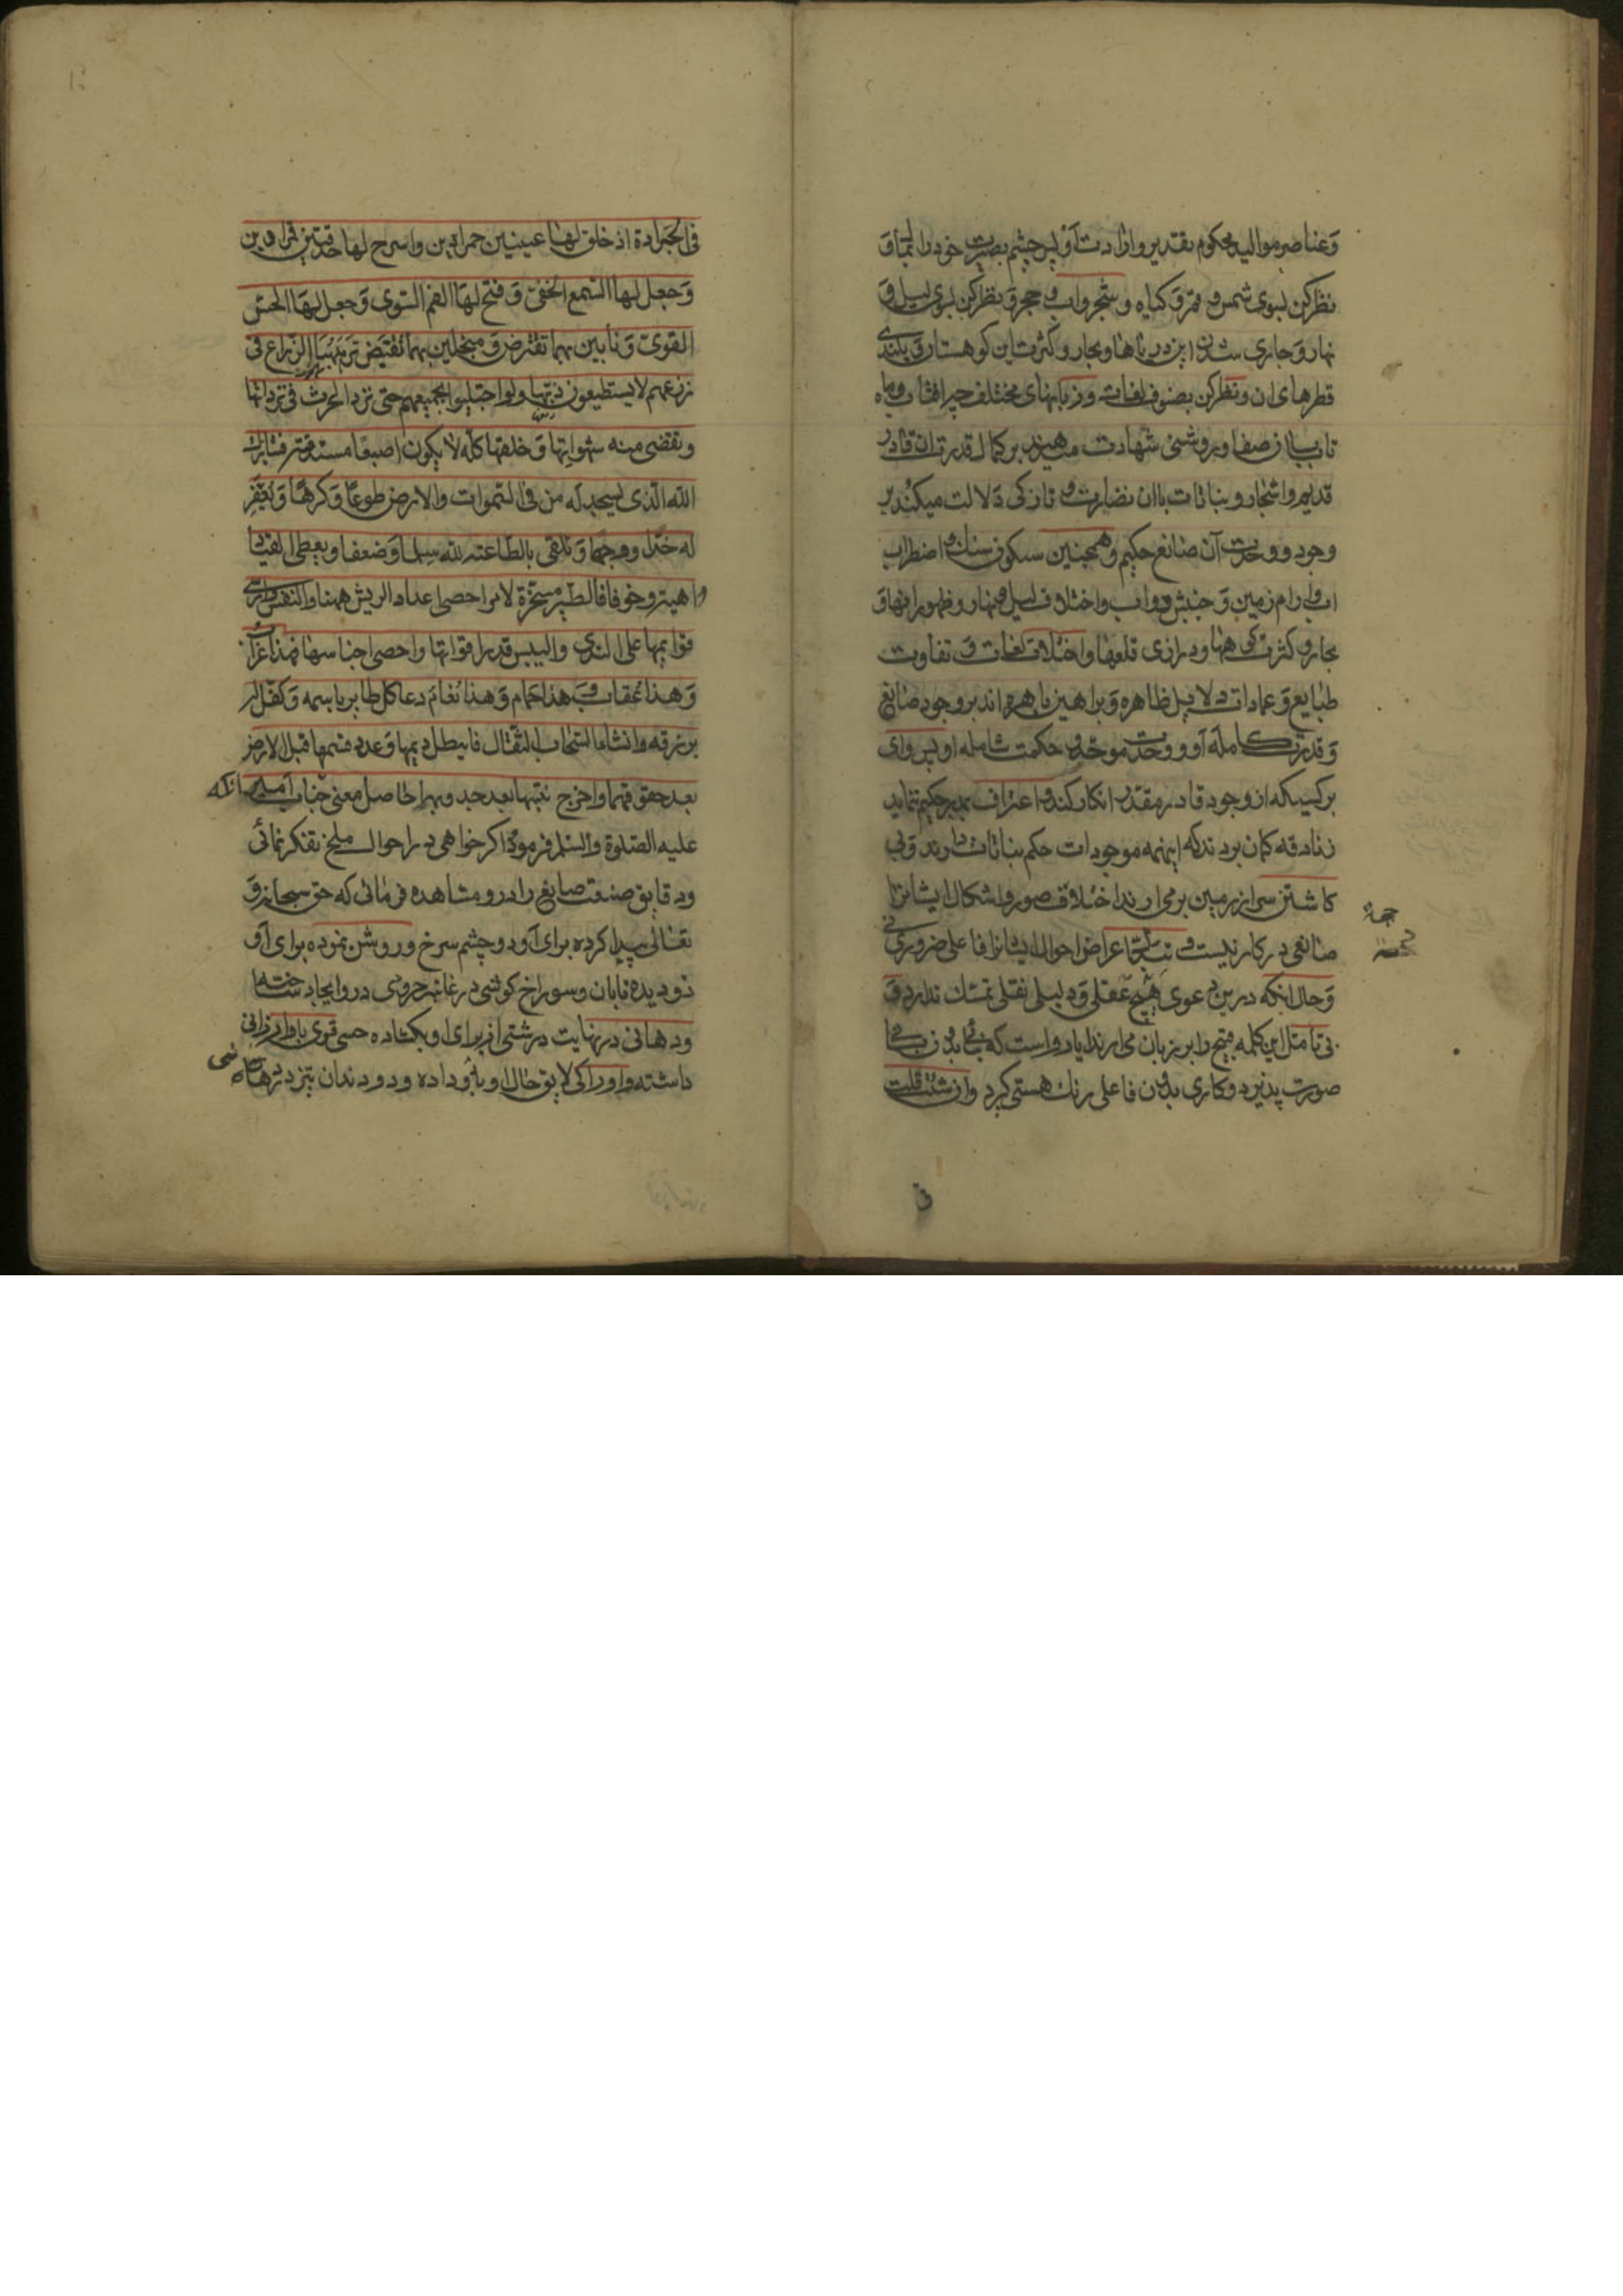 وعناصر مواليد محكوم بتقدير وارادت او پس چشم بصيرت خود را بگشا و
نظر كن بسوی شمس و قمر و كياه و شجر و اب و حجر و نظر كن بسوی ليل و
نهار و جاری شدن اين درياها و بحار و كثرت اين كوهستان و بلندی
قطرهای ان و نظر كن بصنوف لغات و زبانهای مختلف چه افتاب و ماه
تابان صفا و روشنی شهادت ميدهند بر كمال قدرت ان قادر
قديم و اشجار و نباتات باان نضارت و تازكی دلالت ميكند بر
وجود و وحدت آن صانع حكيم و همچنين سكون سنك و اضطراب
اب و ارام زمين و جنبش دواب و اختلاف ليل و نهار و ظهور انهار و
بحار و كثرت كوهها و درازی قلهها و اختلاف لغات و تفاوت
طبايع و عادات دلايل ظاهره و براهين باهره اند بر وجود صانع
و قدرت كامله او و وحدت موجد و حكمت شامله او پس وای
بر كسيكه از وجود قادر مقتدر انكار كند و اعتراف بمدبر حكيم ننمايد
زنادقه كمان بردند كه اينهمه موجودات حكم نباتات دارند و بی
كاشتن سر از زمين بر می ارند اختلاف صور و اشكال ايشانرا
صانعی در كار نيست و اعراض و احوال ايشانرا فاعلی ضروری نی
و حال انكه درين دعوی هيچ عقلی و دليلی نقلی تمسك ندارد و
بی تامل اين كلمه قبيح را بر زبان می ارند ايا رواست كه بنائی بدون بنا
صورت پذيرد و كاری بدون فاعلی رنك هستی كيرد وان شئت قلت
فی الجرادة اذ خلق لها عينين حمراوين واسرج لها حدقتين قمراوين
وجعل لها السمع الخفی وفتح لها الفم السوی وجعل لها الحس
القوی ونابين بهما تقرض ومنجلين بهما تقبض ترهبها الزراع فی
زرعهم لا يستطيعون ذبها ولو اجلبوا بجمعهم حتی ترد الحرث فی نزواتها
وتقضی منه شهواتها وخلقها كله لا يكون اصبعا مستدقة فتبارك
الله الذی يسجد له من فی السموات والارض طوعا وكرها ويعفر
له خدا ووجها ويلقی بالطاعة لله سلما وضعفا ويعطی القياد
رهبة وخوفا فالطير مسخرة لامره احصی اعداد الريش منها والنفس وارسی
قوايمها علی الندی واليبس قدر اقواتها واحصی اجناسها فهذا غراب
وهذا عقاب وهذا حمام وهذا نعام دعا كل طاير باسمه وكفل له
برزقه وانشاء السحاب الثقال فاهطل ديمها وعدد قسمها فبل الارض
بعد جفوفها واخرج نبتها بعد جدوبها حاصل معنی جناب امير انكه
عليه الصلوة والسلم فرموده اكر خواهی در احوال ملخ تفكر نمائی
و دقايق صنعت صانع را در و مشاهده فرمائی كه حق سبحانه و
تعالی پيدا كرده برای او دو چشم سرخ و روشن نموده برای او
دو ديده تابان و سوراخ كوشی در غايت خوردی در و ايجاد ساخته
و دهانی در نهايت درشتی از برای او بكشاده حسی قوی باو ارزانی
داشته و ادراكی لايق حال او باو داده و دو دندان تيز در دهان